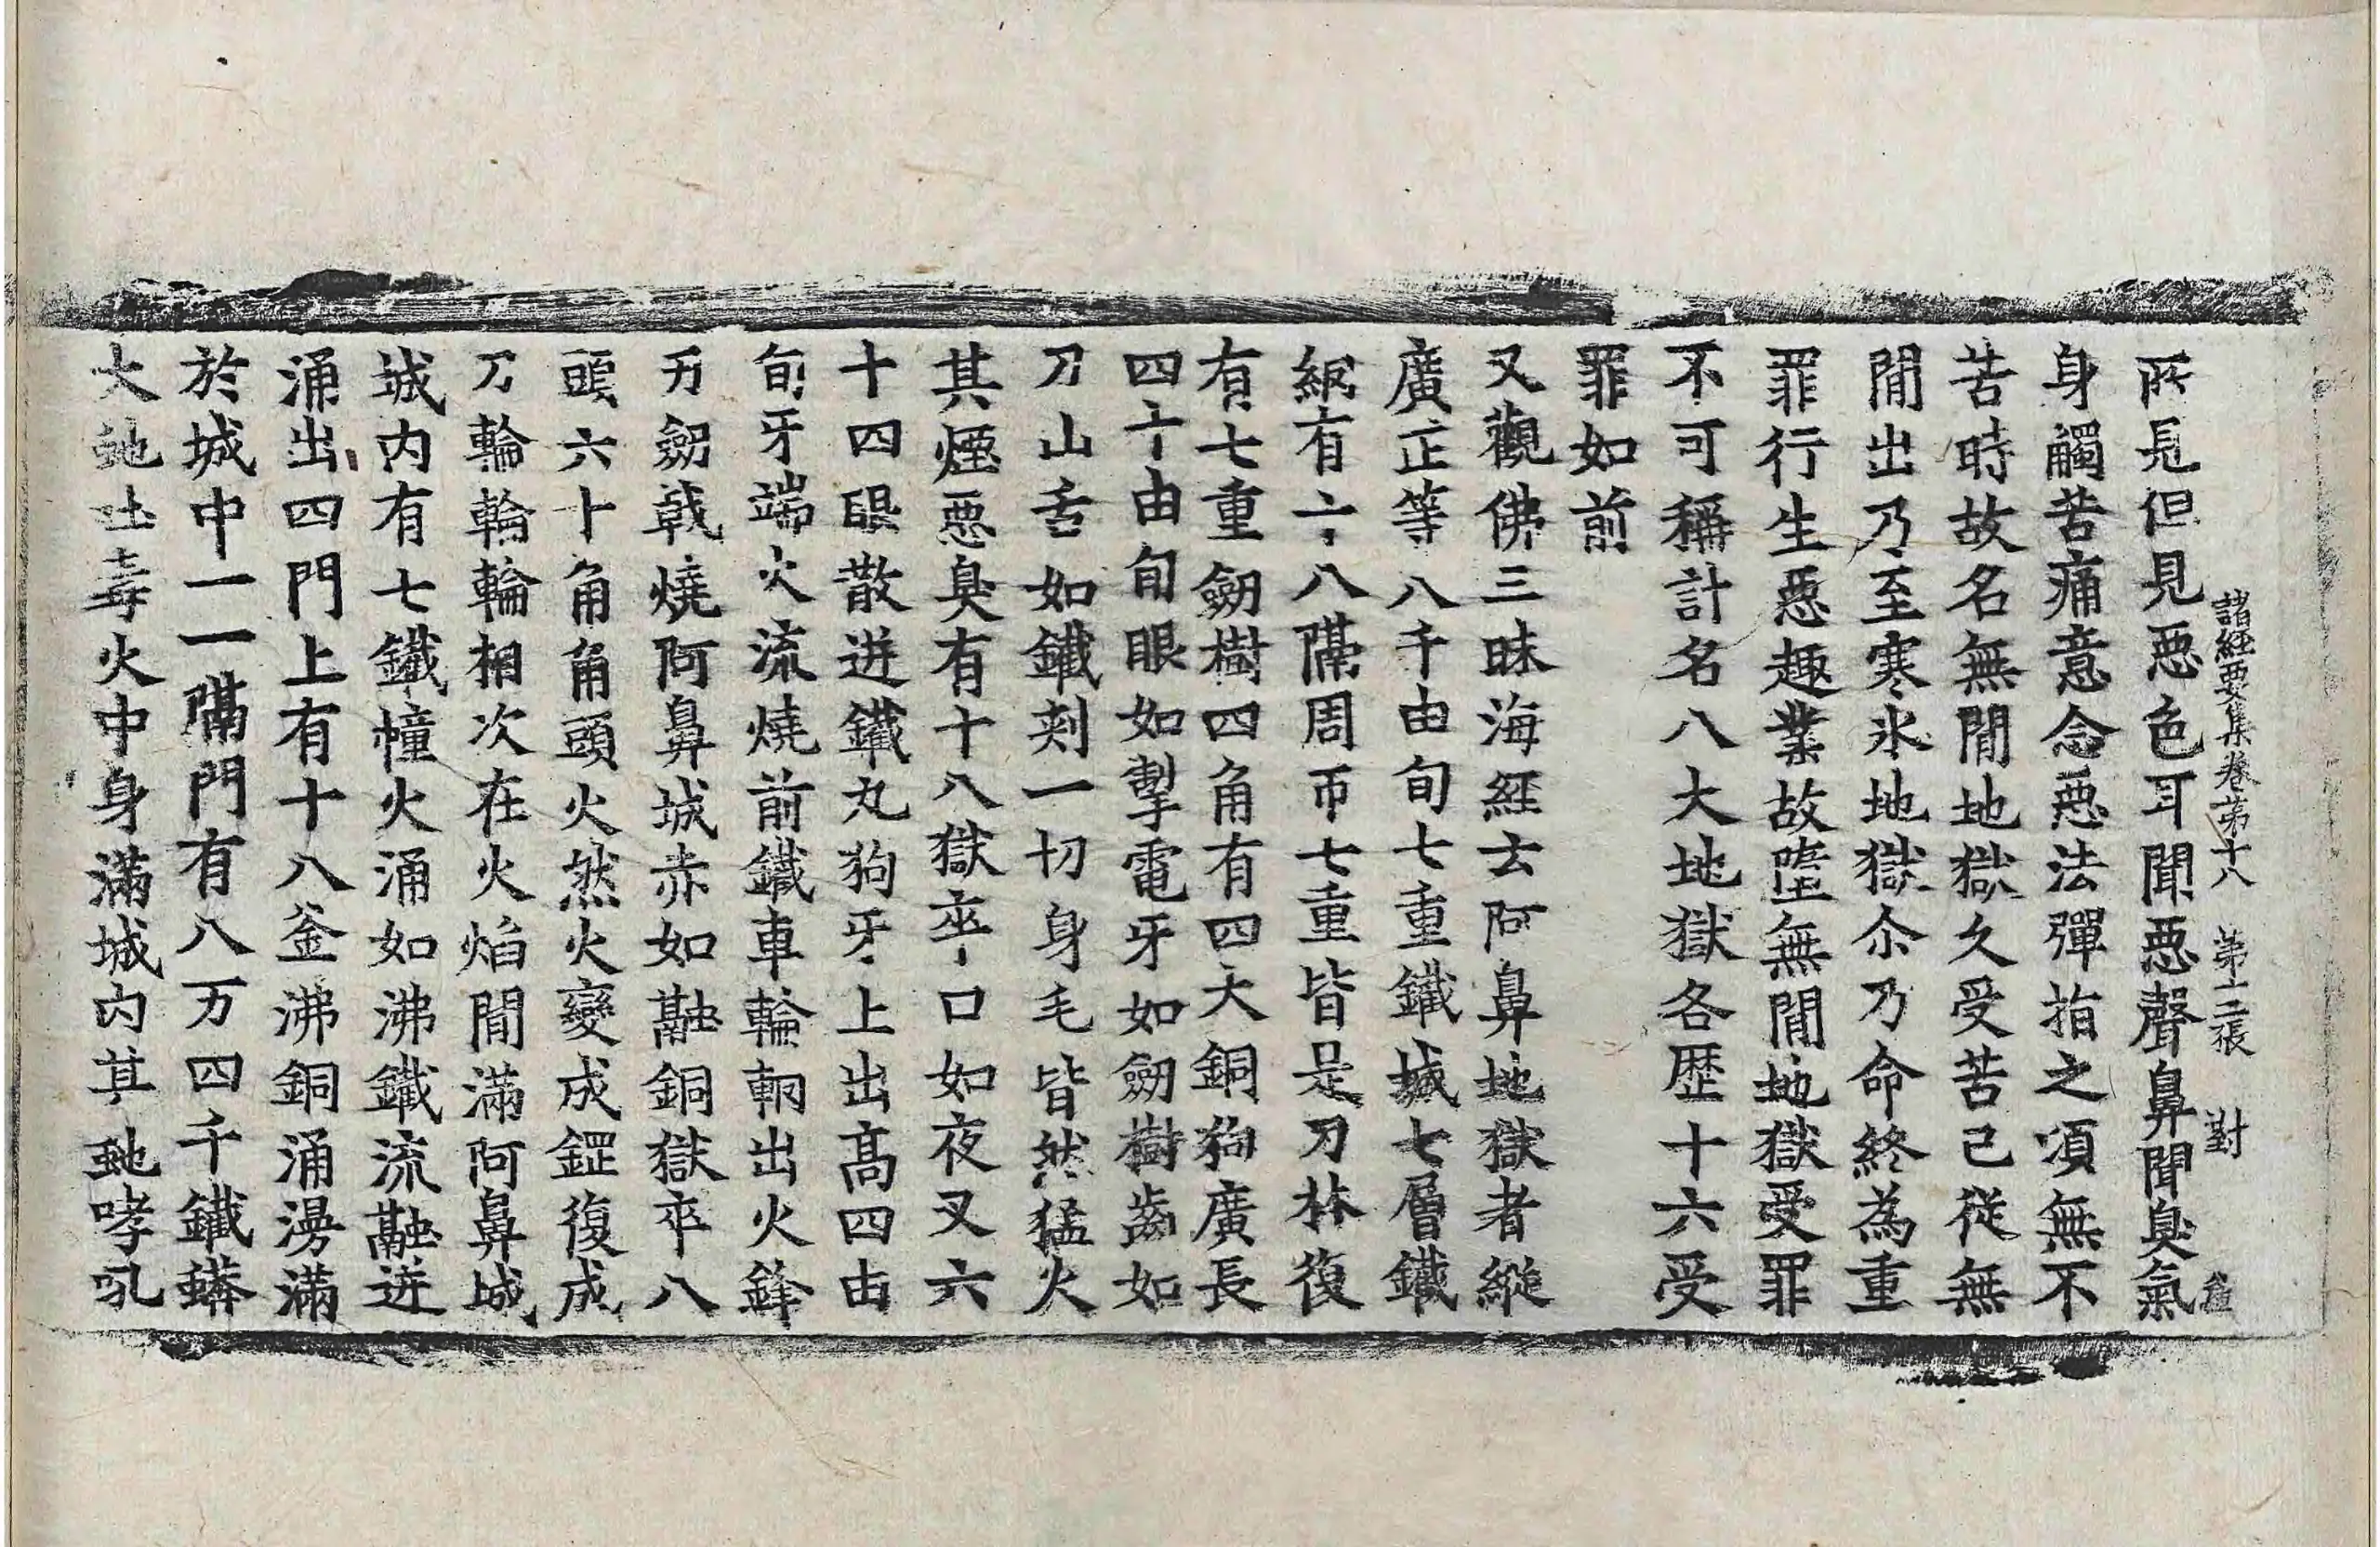 諸經要集卷苐十八　第十二張　對
所見但見惡色耳聞惡聲鼻聞臭氣
身觸苦痛意念惡法彈指之頃無不
苦時故名無閒地獄久受苦已從無
閒出乃至寒氷地獄尒乃命終為重
罪行生惡趣業故墮無閒地獄受罪
不可稱計名八大地獄各歷十六受
罪如前
又觀佛三昧海經云阿鼻地獄者縱
廣正等八千由旬七重鐵城七層鐵
網有十八隔周帀七重皆是刀林復
有七重劒樹四角有四大銅狗廣長
四十由旬眼如掣電牙如劒樹齒如
刀山舌如鐵刺一切身毛皆然猛火
其煙惡臭有十八獄卒口如夜叉六
十四眼散迸鐵丸狗牙上出高四由
旬牙端火流燒前鐵車輪輞出火鋒
刃劒戟燒阿鼻城赤如融銅獄卒八
頭六十角角頭火然火變成鋼復成
刀輪輪輪相次在火焰閒滿阿鼻城
城内有七鐵幢火涌如沸鐵流融迸
涌出四門上有十八釜沸銅涌漫滿
於城中一一隔門有八万四千鐵蟒
大虵吐毒火中身滿城内其虵哮吼